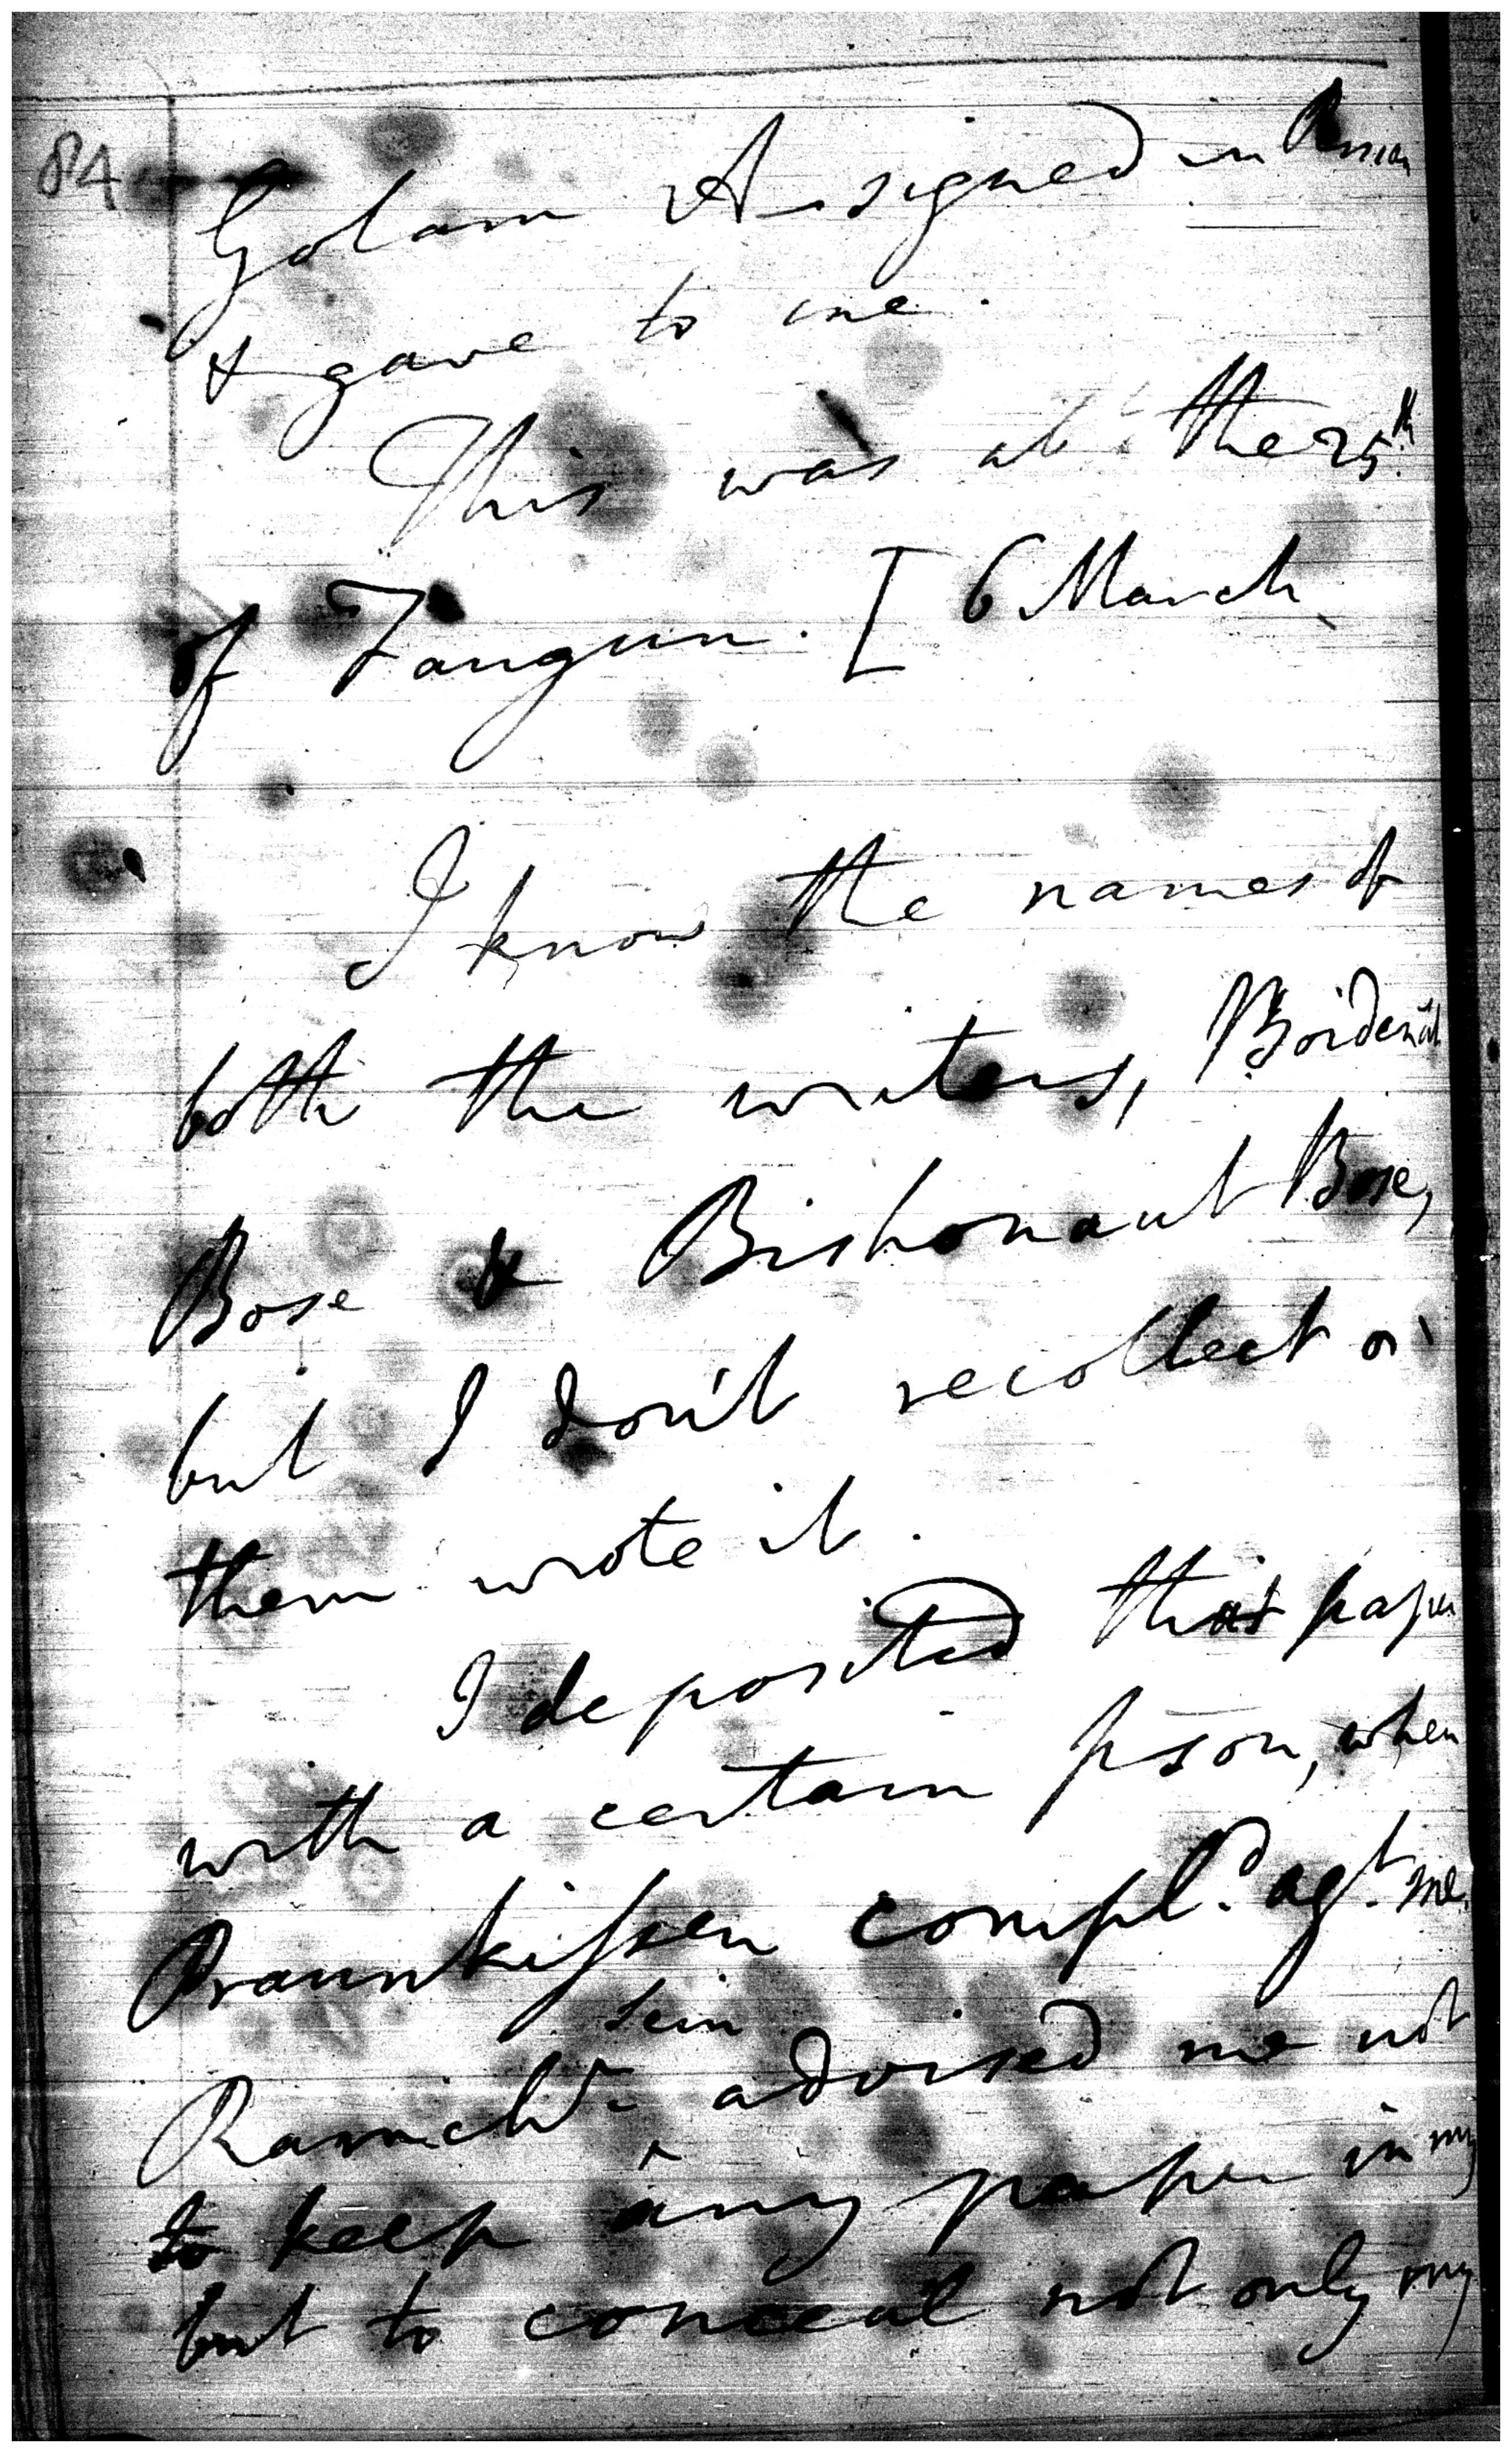 84
Golam A signed in Persian
& gave to me.
This was abt the 25th
of Faugun. [ 6 March
I know the names of
both the writers, Boidenat
Bose & Bishonaut Bose,
but I don't recollect
them wrote it.
I deposited that paper
with a certain pson, when
Praunkissen compld. agt. me.
Ramchr. Sein advised me not
to keep any paper in my
but to conceal not only my